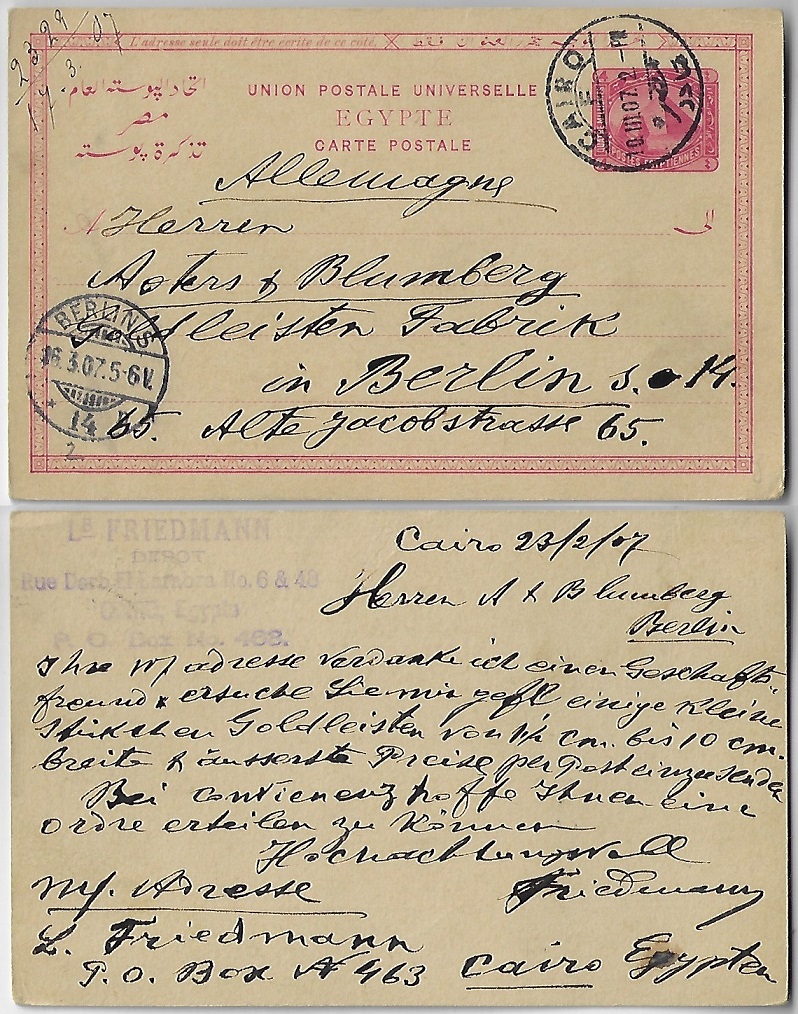 2329/
17.3.07
L'adresse seule doit être écrite de ce côté.
اتحاد البوستة العام
UNION POSTALE UNIVERSELLE
مصر
EGYPTE
تذكرة بوستة
CARTE POSTALE
CAIRO
E
القاهرة
Allemagne
A Herren
الى
Asters & Blumberg
Goldleisten Fabrik
in Berlin S. 14.
65. Alte Jacobstrasse 65.
BERLIN S
16.3.07.5-6V.
14
2.
LB FRIEDMANN
DEPOT
Rue Darb El No. 6 & 48
Cairo, Egypte
P. O. Box No. 463.
Cairo 23/2/07
Herren A & Blumberg
Berlin
Ihre w/ adresse verdanke ich einen Geschäfts-
freund & ersuche Sie mir gefl einige kleine
Stükchen Goldleisten von 1½ cm. bis 10 cm.
breite & äusserste Preise per Post einzusenden
Bei convienenz hoffe Ihnen eine
ordre erteilen zu können
Hochachtungsvoll
Friedmann
m/. Adresse
L. Friedmann
P. O. Box N 463 Cairo Egypten